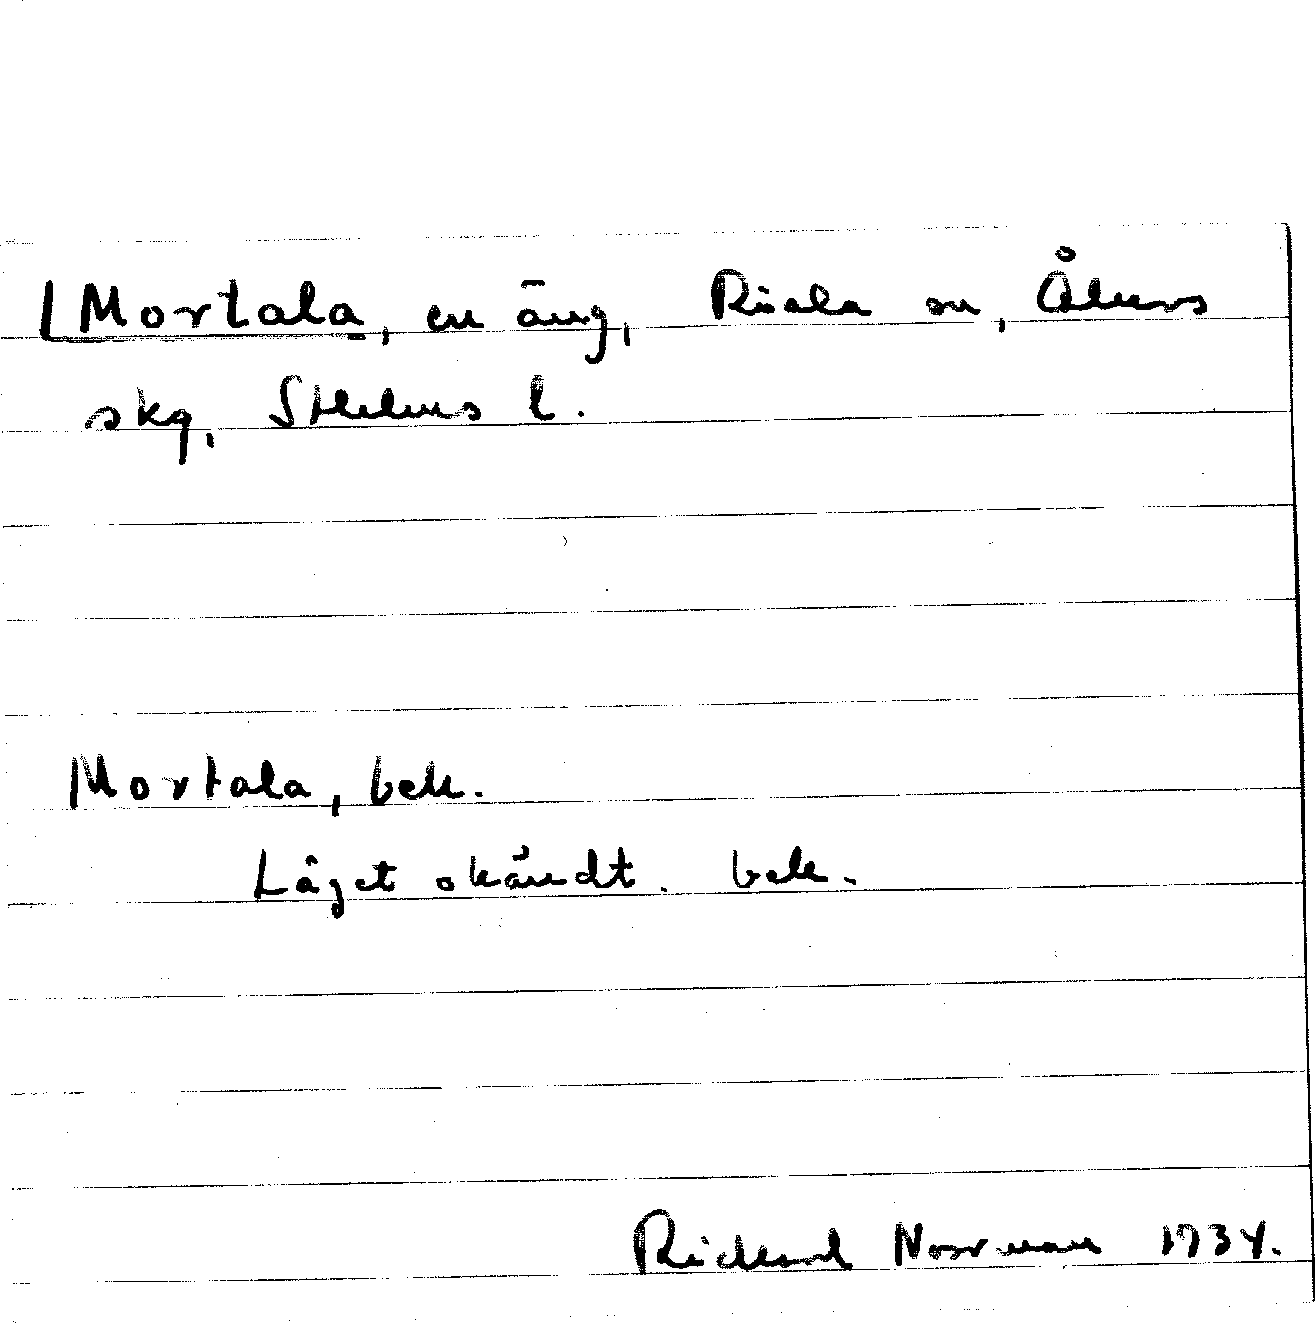 Mortala, en äng, Riala sn, Åkers
skg, Sthlms l.
Mortala, bek.
Läget okändt. bek.
Rickard Norrman 1934.